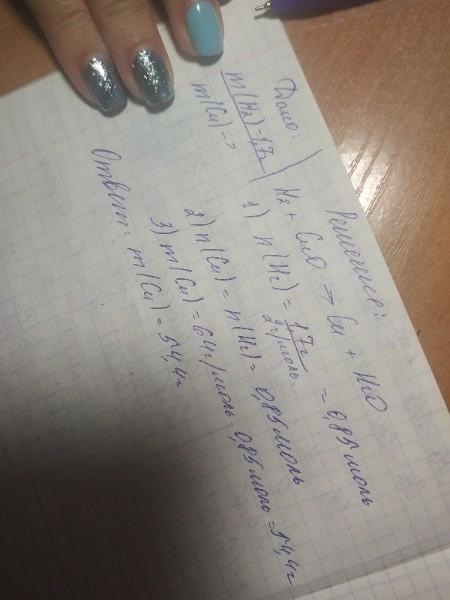 Дано:
m(H₂)=1,7г
m(Cu)-?
Решение:
H₂ + CuO → Cu + H₂O
1) n(H₂) = 1,7г / 2г/моль = 0,85 моль
2) n(Cu) = n(H₂) = 0,85 моль
3) m(Cu) = 64г/моль · 0,85 моль = 54,4г
Ответ: m(Cu) = 54,4г